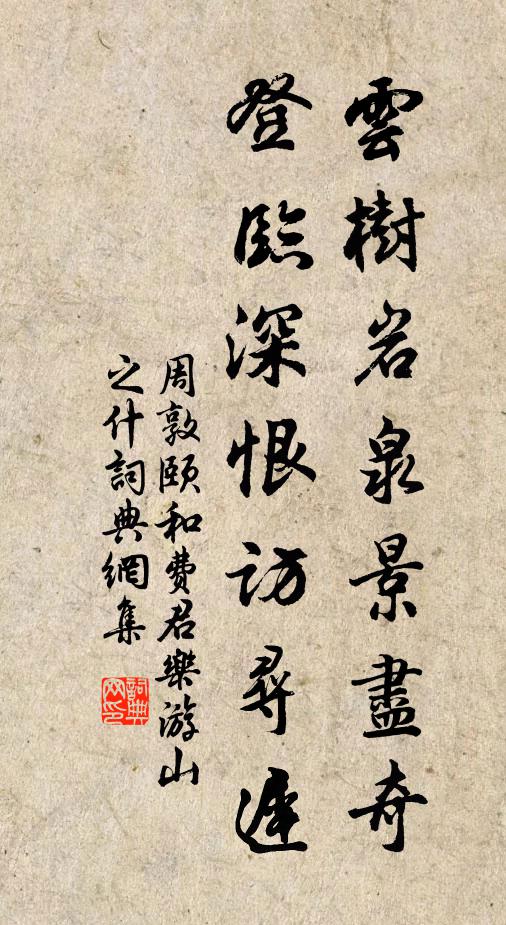 雲樹岩泉景盡奇
登臨深恨訪尋遲
周敦頤和費君樂游山
之什詞典網集
詞典
网印